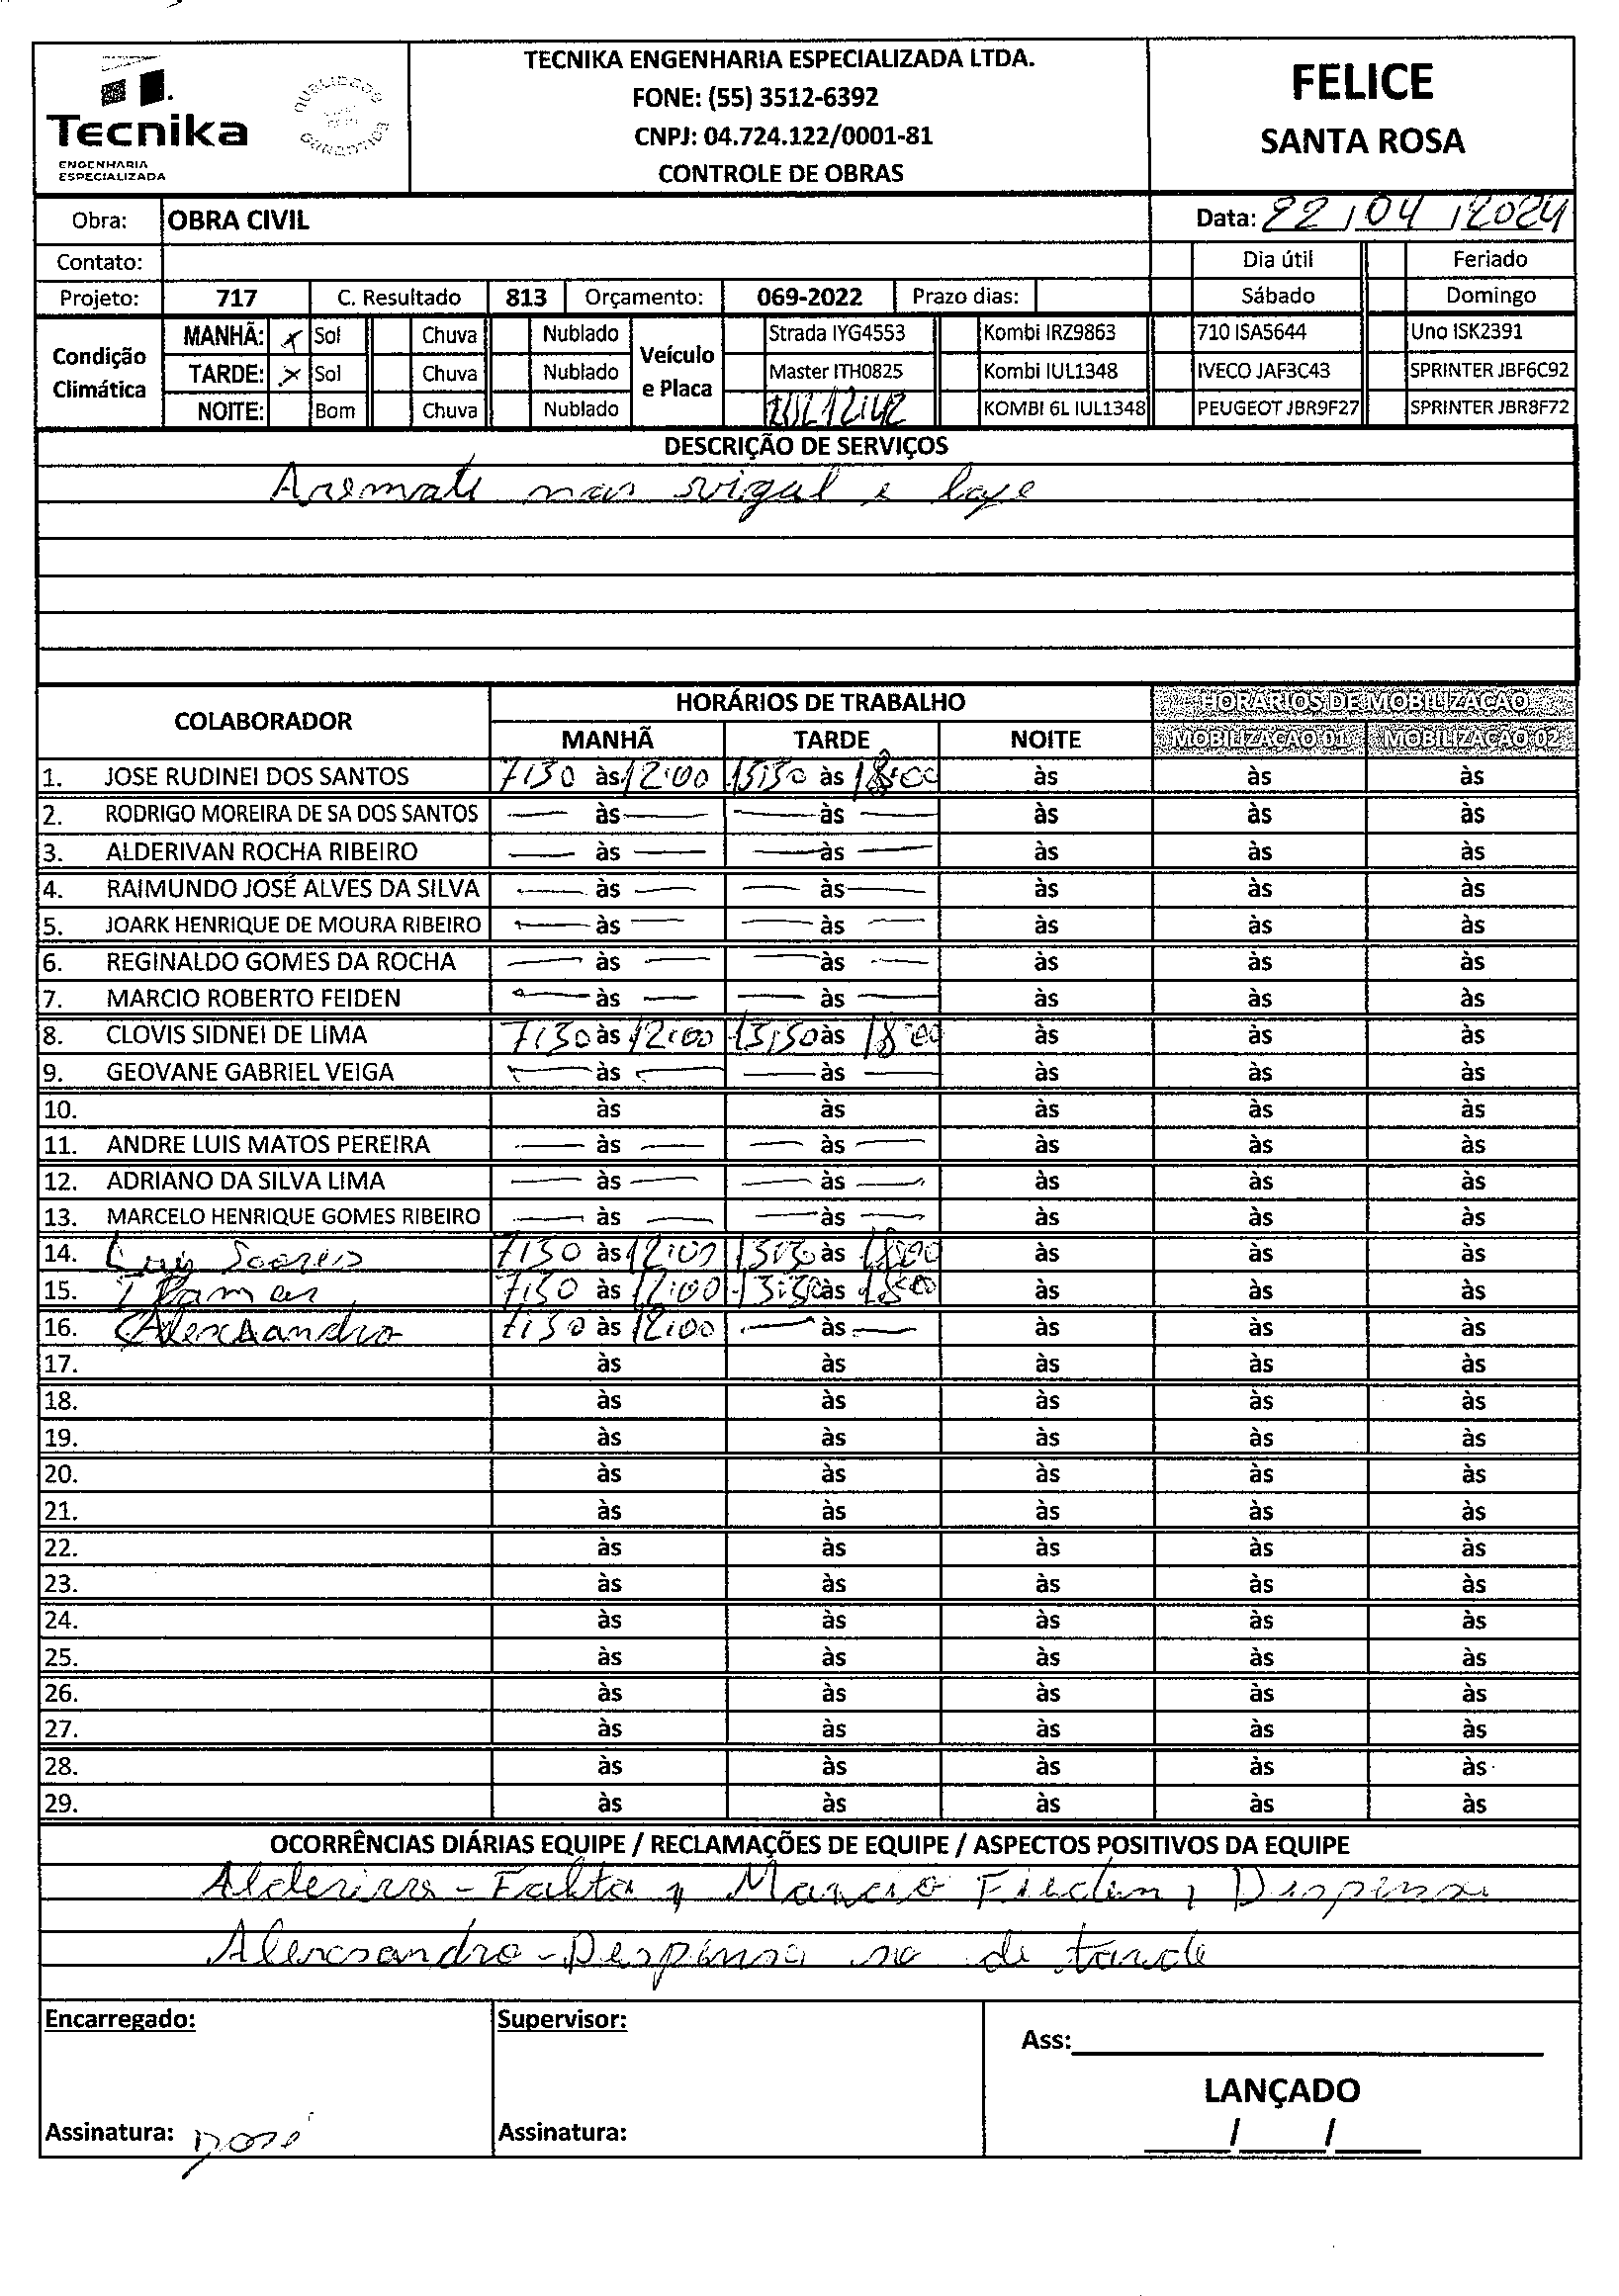 Tecnika
ENGENHARIA
ESPECIALIZADA
TECNIKA ENGENHARIA ESPECIALIZADA LTDA.
FONE: (55) 3512-6392
CNPJ: 04.724.122/0001-81
CONTROLE DE OBRAS
FELICE
SANTA ROSA
Obra: OBRA CIVIL Data: 22/04/2024
Contato: Dia útil Feriado
Projeto: 717 C. Resultado 813 Orçamento: 069-2022 Prazo dias: Sábado Domingo
Condição Climática
MANHÃ: x Sol Chuva Nublado
TARDE: x Sol Chuva Nublado
NOITE: Bom Chuva Nublado
Veículo e Placa
Strada IYG4553 Kombi IRZ9863 710 ISA5644 Uno ISK2391
Master ITH0825 Kombi IUL1348 IVECO JAF3C43 SPRINTER JBF6C92
KOMBI 6L IUL1348 PEUGEOT JBR9F27 SPRINTER JBR8F72
DESCRIÇÃO DE SERVIÇOS
Aremate nas e laje
COLABORADOR HORÁRIOS DE TRABALHO HORÁRIOS DE MOBILIZAÇÃO
MANHÃ TARDE NOITE MOBILIZAÇÃO 01 MOBILIZAÇÃO 02
1. JOSE RUDINEI DOS SANTOS 7:30 às 12:00 13:30 às 18:00 às às às
2. RODRIGO MOREIRA DE SA DOS SANTOS — às — — às — às às às
3. ALDERIVAN ROCHA RIBEIRO — às — — às — às às às
4. RAIMUNDO JOSÉ ALVES DA SILVA — às — — às — às às às
5. JOARK HENRIQUE DE MOURA RIBEIRO — às — — às — às às às
6. REGINALDO GOMES DA ROCHA — às — — às — às às às
7. MARCIO ROBERTO FEIDEN — às — — às — às às às
8. CLOVIS SIDNEI DE LIMA 7:30 às 12:00 13:30 às 18:00 às às às
9. GEOVANE GABRIEL VEIGA — às — — às — às às às
10. às às às às às
11. ANDRE LUIS MATOS PEREIRA — às — — às — às às às
12. ADRIANO DA SILVA LIMA — às — — às — às às às
13. MARCELO HENRIQUE GOMES RIBEIRO — às — — às — às às às
14. Luis Soares 7:30 às 12:00 13:30 às 18:00 às às às
15. Itamar 7:30 às 12:00 13:30 às 18:00 às às às
16. Alexsandro 7:30 às 12:00 — às — às às às
17. às às às às às
18. às às às às às
19. às às às às às
20. às às às às às
21. às às às às às
22. às às às às às
23. às às às às às
24. às às às às às
25. às às às às às
26. às às às às às
27. às às às às às
28. às às às às às
29. às às às às às
OCORRÊNCIAS DIÁRIAS EQUIPE / RECLAMAÇÕES DE EQUIPE / ASPECTOS POSITIVOS DA EQUIPE
- Falta, Marcio Fieden, Dispensa
Alexsandro - Despensa so de tarde
Encarregado: Supervisor:
Ass:
LANÇADO
Assinatura: José Assinatura: / /